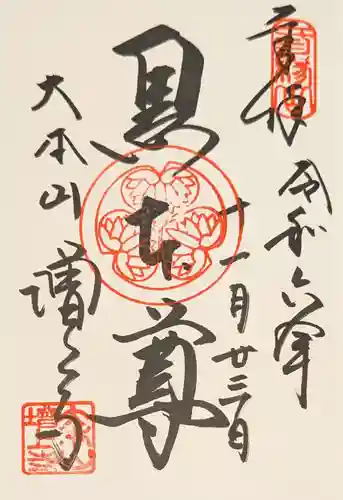 奉拝
令和六年
十一月廿三日
黒本尊
大本山
増上寺